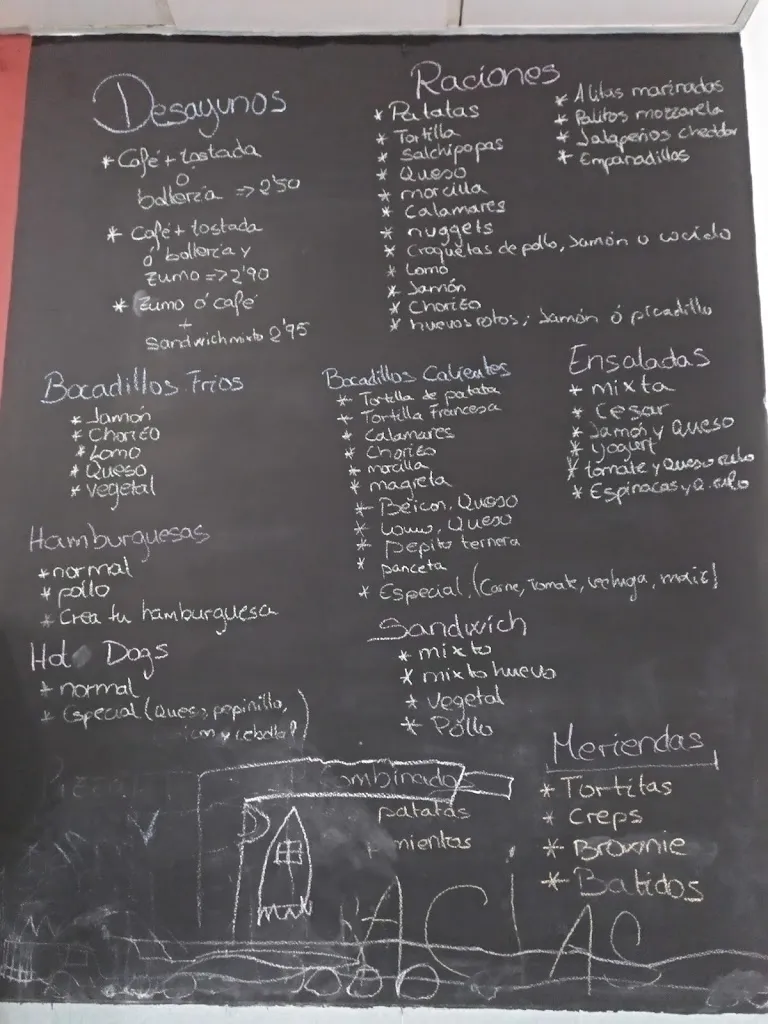 Desayunos
* Café + tostada
o
bollería => 2'50
* Café + tostada
ó bollería y
zumo => 2'90
* Zumo ó café
+
Sandwich mixto 2'95
Raciones
* Patatas
* Tortilla
* Salchipapas
* Queso
* morcilla
* Calamares
* nuggets
* Croquetas de pollo, Jamón o cocido
* Lomo
* Jamón
* Chorizo
* huevos rotos; Jamón ó picadillo
* Alitas marinadas
* Palitos mozzarela
* Jalapeños cheddar
* Empanadillas
Bocadillos Frios
* Jamón
* Chorizo
* Lomo
* Queso
* vegetal
Bocadillos Calientes
* Tortilla de patata
* Tortilla Francesa
* Calamares
* Chorizo
* morcilla
* magreta
* Beicon, Queso
* Lomo, Queso
* Pepito ternera
* panceta
* Especial, (Carne, Tomate, lechuga, maiz)
Ensaladas
* mixta
* Cesar
* Jamón y Queso
* yogurt
* tomate y Queso rulo
* Espinacas y Q. rulo
Hamburguesas
* normal
* pollo
* Crea tu hamburguesa
Hot Dogs
* normal
* Especial (Queso, pepinillo,
y cebolla)
Sandwich
* mixto
* mixto huevo
* vegetal
* Pollo
Combinados
patatas
Meriendas
* Tortitas
* Creps
* Brownie
* Batidos